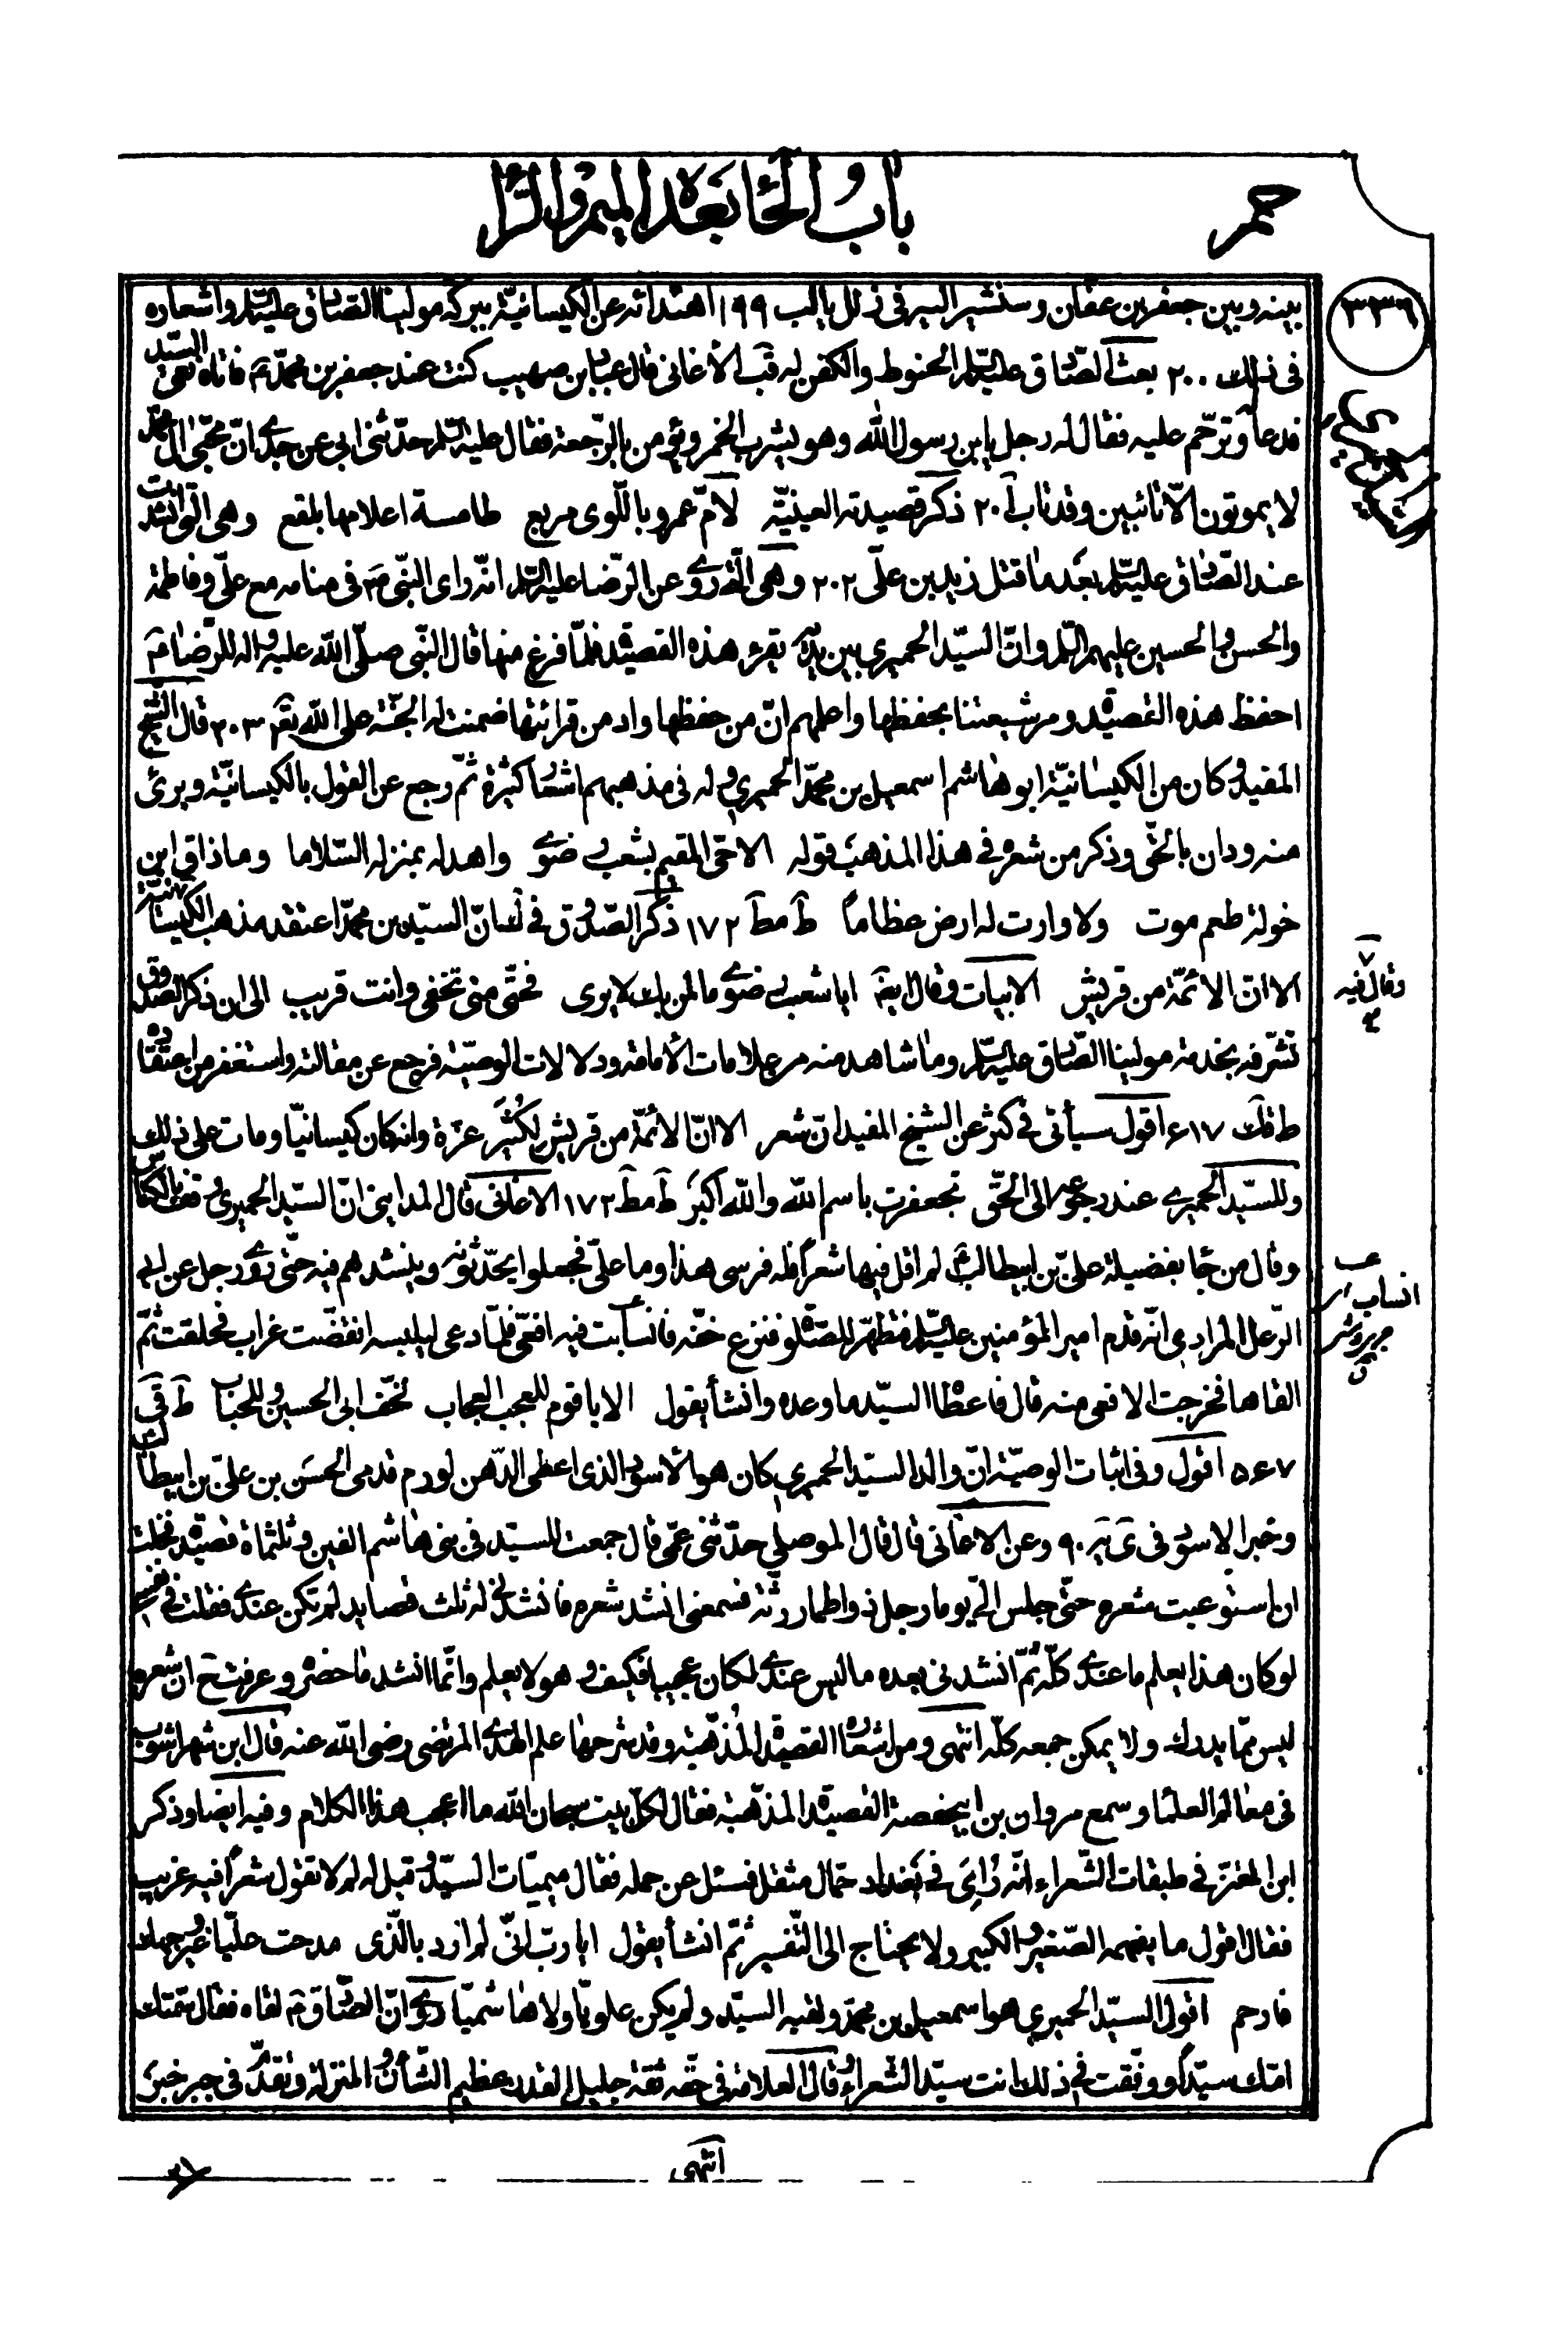 حمر
باب الحاء بعده الميم والراء
٣٣٦
بينه وبين جعفر بن عفان وسنشير اليه في ذلل يا لب ١٩٩ اهتدائه عن الكيسانيّة ببركة مولينا الصّادق عليه السّلم واشعاره
في ذلك ٢٠٠ بعث الصّادق عليه السّلم الحنوط والكفن له قب الأغاني قال عباد بن صهيب كنت عند جعفر بن محمّد ع فاتاه نعى السيّد
فدعا له وترحّم عليه فقال له رجل يابن رسول الله وهو يشرب الخمر ويؤمن بالرّجعة فقال عليه السّلم حدّثني ابي عن جدّي انّ محبّي ال محمّد
لا يموتون الّا تائبين وقد تاب ٢٠١ ذكر قصيدته العينيّة لامّ عمرو باللّوى مربع طامسة اعلامها بلقع وهي التي انشدت
عند الصّادق عليه السّلم بعد ما قتل زيد بن علّي ٢٠٢ وهي الّتي روي عن الرّضا عليه السّلم انّه راى النبّي ص في منامه مع عليّ وفاطمة
والحسن والحسين عليهم السّلم وانّ السيّد الحميري بين يديه يقرء هذه القصيدة فلمّا فرغ منها قال النّبي صلّى الله عليه واله للرّضا ع
احفظ هذه القصيدة ومر شيعتنا بحفظها واعلمهم انّ من حفظها وادمن قرائتها ضمنت له الجنّة على الله تعالى ٢٠٣ قال الشّيخ
المفيد وكان من الكيسانيّة ابو هاشم اسمعيل بن محمّد الحميري وله في مذهبهم اشعار كثيرة ثمّ رجع عن القول بالكيسانيّة وبرئ
منه ودان بالحقّ وذكر من شعره في هذا المذهب قوله الا حيّ المقيم بشعب رضوى واهد له بمنزله السّلاما وما ذاق ابن
خولة طعم موت ولا وارت له ارض عظاماً ط مط ١٧٢ ذكر الصّدوق في ك انّ السيّد بن محمّد اعتقد مذهب الكيسانيّة
وقال فيه
الا انّ الائمّة من قريش الابيات وقال ايضا ايا شعب رضوى ما لمن بك لا يرى فحتّى متى تخفى وانت قريب الى ان ذكر الصّدوق
تشرّفه بخدمة مولينا الصّادق عليه السّلم وما شاهد منه من علامات الأمامة ودلالات الوصيّة فرجع عن مقالته واستغفر من اعتقاده
ط فك ٦١٧ اقول سيأتي في كثر عن الشيخ المفيد انّ شعر الا انّ الائمّة من قريش لكُثَيّر عزة وانه كان كيسانيّاً ومات على ذلك
وللسيّد الحميري عند رجوعه الى الحقّ تجعفرت باسم الله والله اكبر ط مط ١٧٢ الاغاني قال المدايني انّ السيّد الحميري وقف بالكناس
وقال من جاء بفضيلة علي بن ابيطالب لم اقل فيها شعراً فله فرسي هذا وما عليّ فجعلوا يحدّثونه وينشدهم فيه حتّى روى رجل عن ابي
انساب
الزعل المرادي انّه قدم امير المؤمنين عليه السّلم فتطهّر للصّلوة فنزع خفّه فانسابت فيه افعى فلمّا دعى ليلبسه انقضّت غراب فحلقت ثمّ
القاها فخرجت الافعى منه قال فاعطاه السيّد ما وعده وانشأ يقول الا يا قوم للعجب العجاب لخفّ ابي الحسين وللحباب ط قى
٥٦٧ اقول وفي اثبات الوصيّة انّ والد السيّد الحميري كان هو الاسود الذي اعطى الدّهن لورم قدمي الحسَن بن عليّ بن ابيطالب
وخبر الاسود في ى ير ٩٠ وعن الاغاني قال قال الموصلي حدّثني عمّي قال جمعت للسيّد في بني هاشم الفين وثلثماة قصيدة فخلت
ان استوعبت شعره حتّى جلس اليّ يوما رجل ذو اطمار رثّة فسمعني انشد شعره فانشدني له ثلث قصايد لم تكن عندي فقلت في نفسي
لو كان هذا يعلم ما عندي كلّه ثمّ انشدني بعده ما ليس عندي لكان عجيبا فكيف وهو لا يعلم وانّما انشد ما حضره وعرفت ح ان شعره
ليس ممّا يدرك ولا يمكن جمعه كلّه انتهى ومن اشعاره القصيدة المُذهّبة وقد شرحها علم الهدى المرتضى رضي الله عنه قال ابن شهراشوب
في معالم العلماء وسمع مروان بن ابيحفصة القصيدة المذهّبة فقال لكلّ بيت سبحان الله ما اعجب هذا الكلام وفيه ايضا وذكر
ابن المعتزّ في طبقات الشّعراء انّه رُائِيَ في بَغداد حمّال مثقل فسئل عن حمله فقال ميميّات السيّد وقيل له لم لا تقول شعراً فيه غريب
فقال اقول ما يفهمه الصّغير والكبير ولا يحتاج الى التّفسير ثمّ انشأ يقول ايا ربّ انّي لم ارد بالّذي مدحت عليّاً غير وجهك
فارحم اقول السيّد الحميري هو اسمعيل بن محمّد ولقبه السيّد ولم يكن علويّاً ولا هاشميّاً روى انّ الصّادق ع لقاه فقال سمّتك
امّك سيّداً ووفّقت في ذلك انت سيّد الشّعراء وقال العلامة في حقّه ثقة جليل القدر عظيم الشّأن والمنزلة وتقدّم في جبر خبر
انتهى